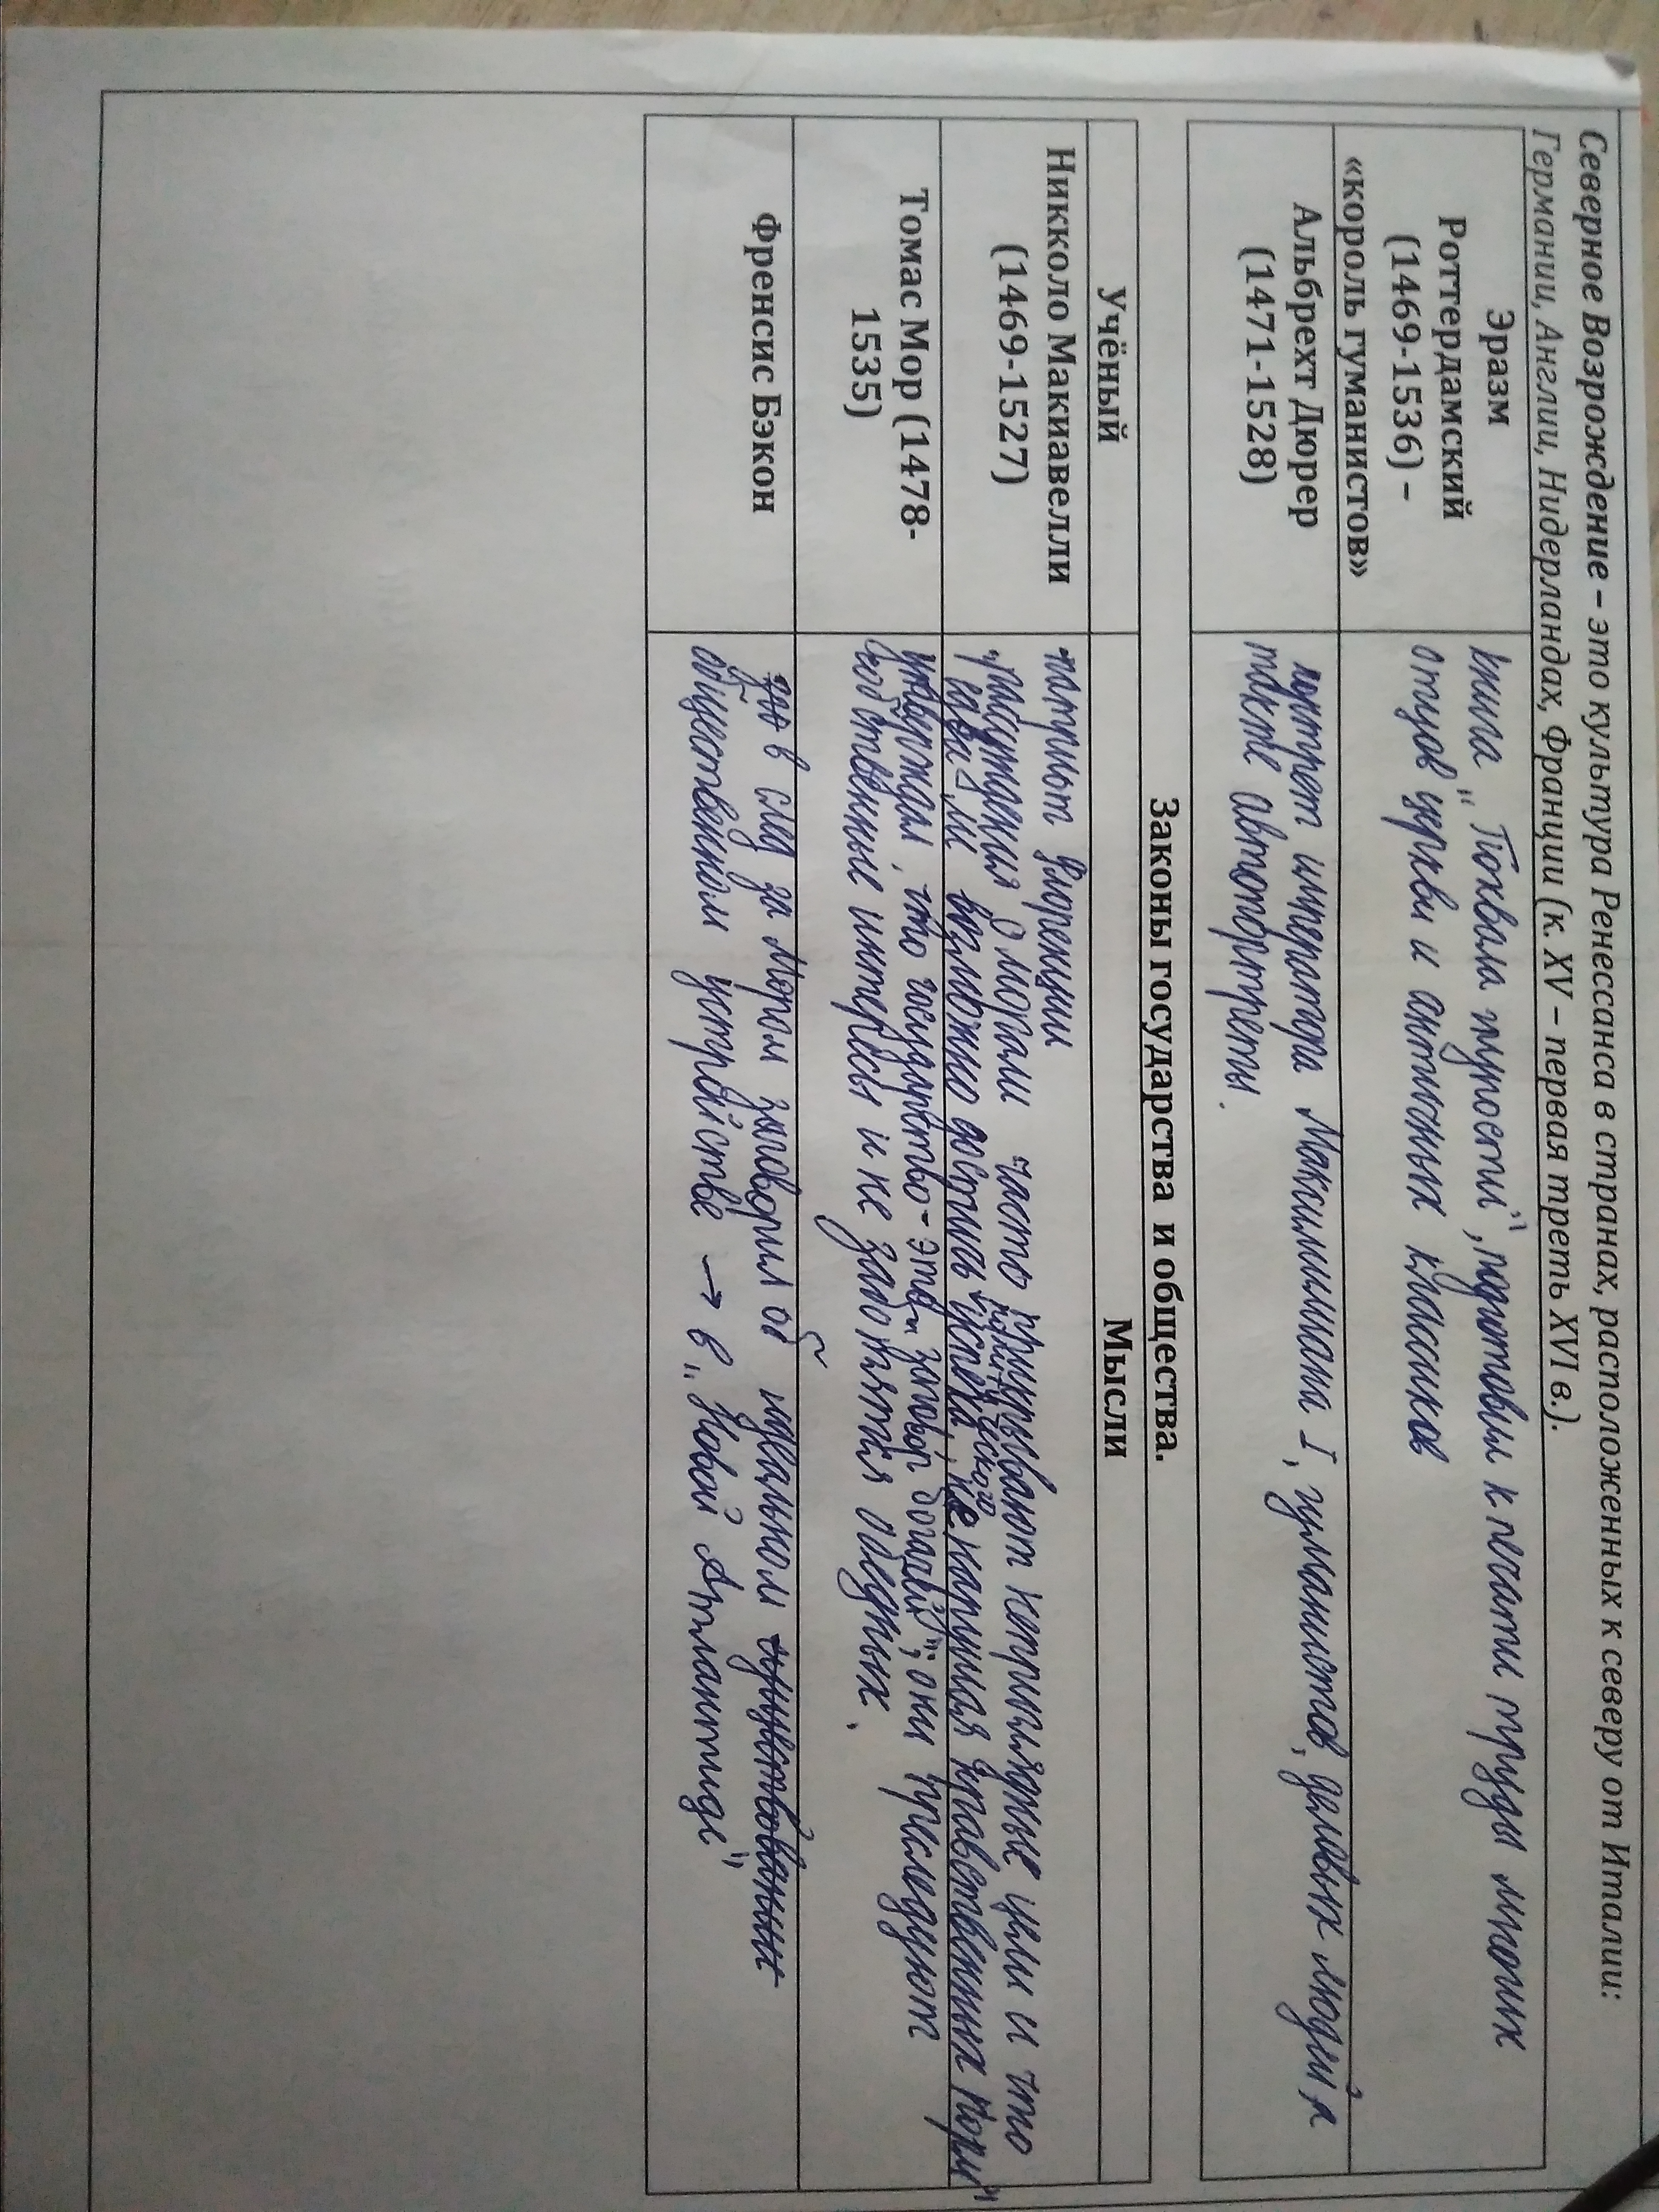 Северное Возрождение – это культура Ренессанса в странах, расположенных к северу от Италии:
Германии, Англии, Нидерландах, Франции (к. XV – первая треть XVI в.).
Эразм
Роттердамский
(1469-1536) –
«король гуманистов»
книга „Похвала глупости", подготовил к печати труды многих
отцов церкви и античных классиков
Альбрехт Дюрер
(1471-1528)
портрет императора Максимилиана I, гуманистов, деловых людей, а
также автопортреты.
Законы государства и общества.
Учёный
Мысли
Никколо Макиавелли
(1469-1527)
патриот Флоренции
„рассуждения о морали часто прикрывают неприглядные цели и что
возможно достичь политического успеха, не нарушая нравственных норм"
Томас Мор (1478-
1535)
утверждал, что государство - это „заговор богачей", они преследуют
собственные интересы и не заботятся о бедных.
Френсис Бэкон
в след за Мором заговорил об идеальном
общественном устройстве → в „Новой Атлантиде"